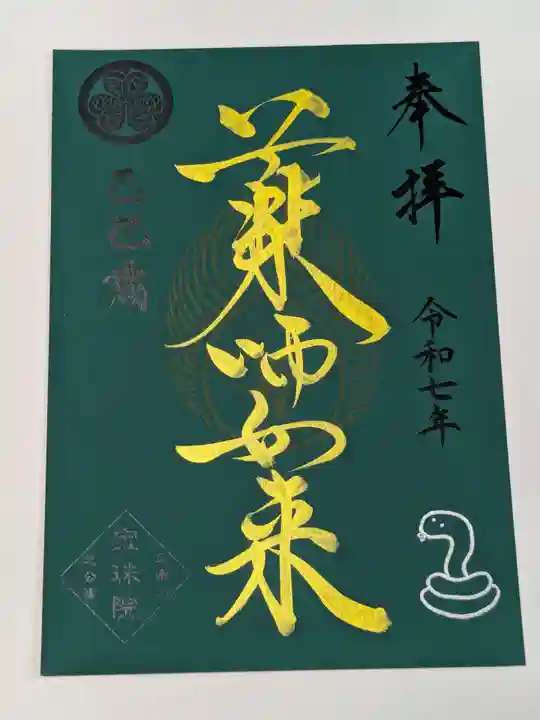 奉拝
令和七年
薬師如来
乙巳歳
宝珠院